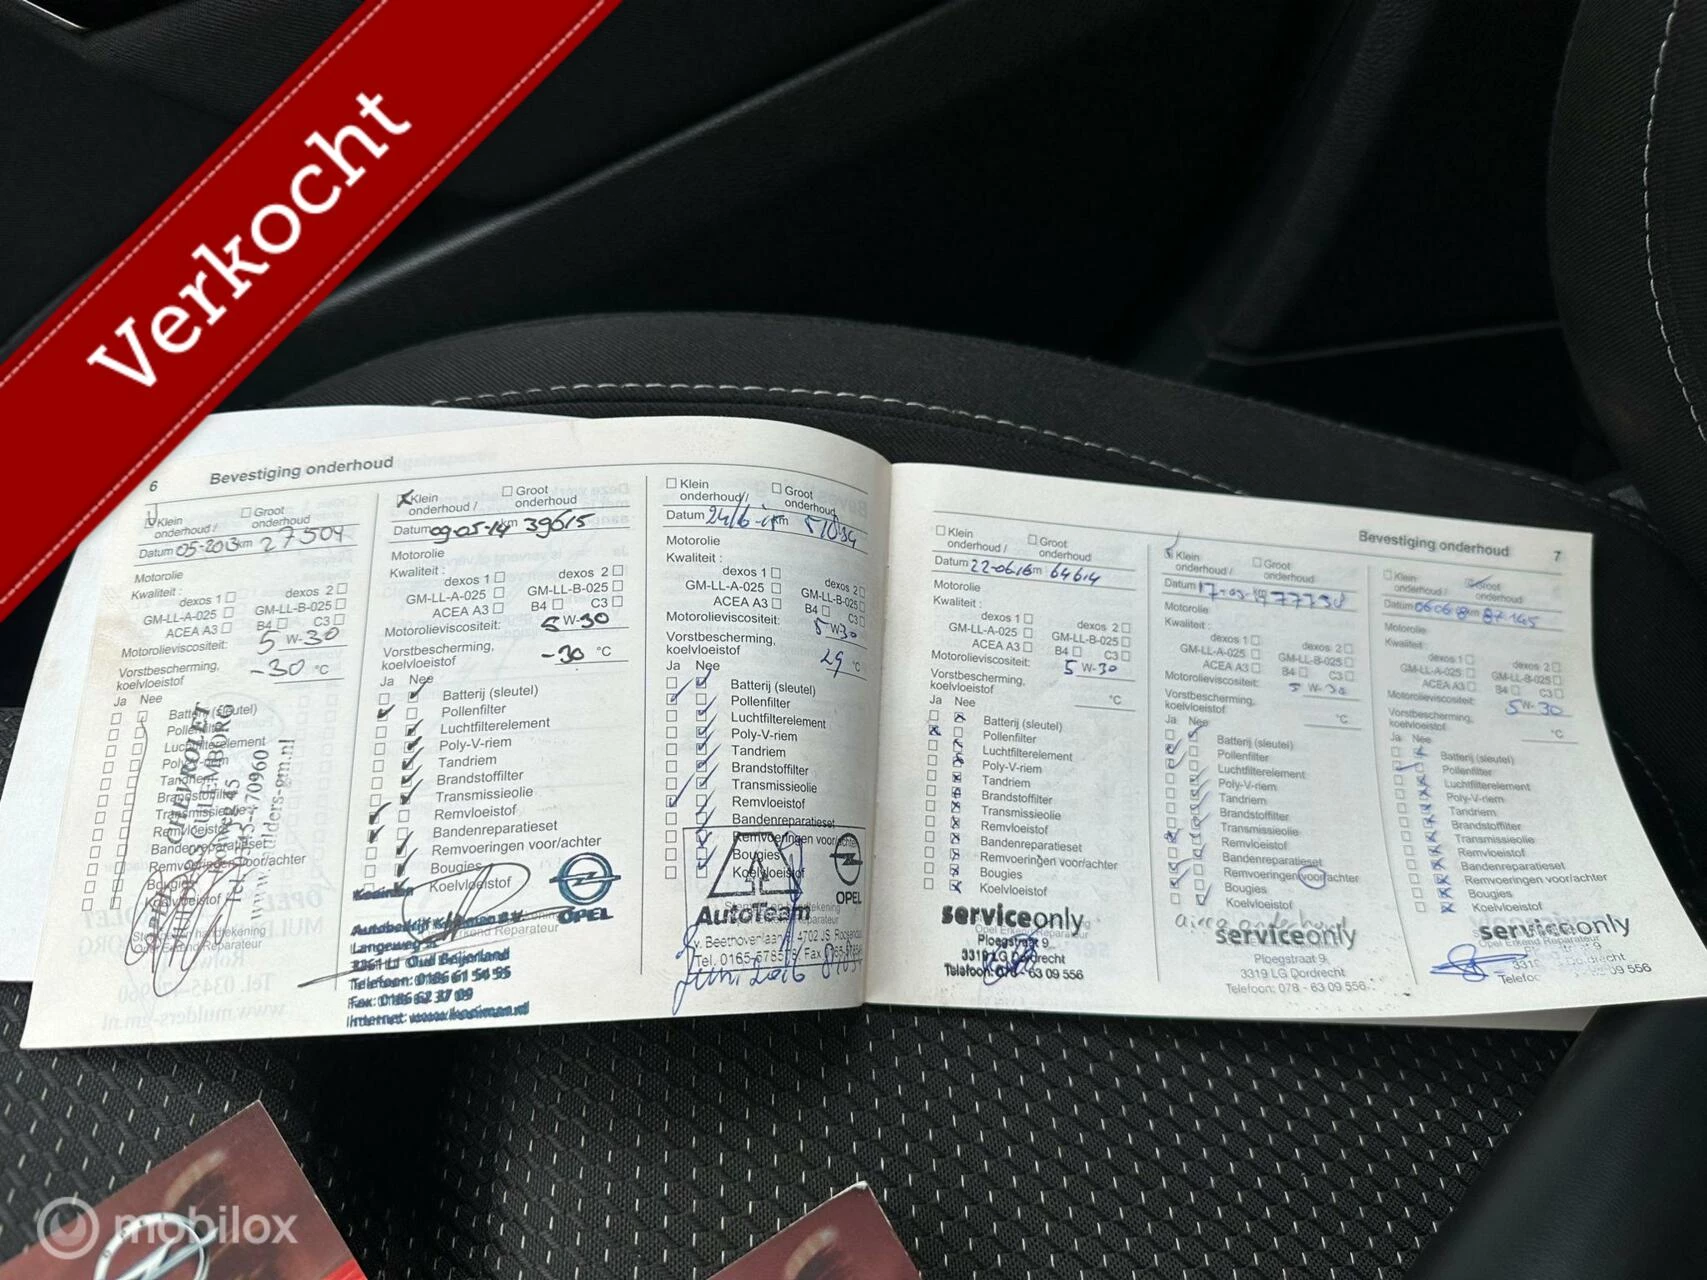 Verkocht
6 Bevestiging onderhoud
Klein onderhoud / Groot onderhoud
Datum 05-2013 km 27504
Motorolie
Kwaliteit :
dexos 1 dexos 2
GM-LL-A-025 GM-LL-B-025
ACEA A3 B4 C3
Motorolieviscositeit: 5 W-30
Vorstbescherming,
koelvloeistof -30 °C
Ja Nee
Batterij (sleutel)
Pollenfilter
Luchtfilterelement
Poly-V-riem
Tandriem
Brandstoffilter
Transmissieolie
Remvloeistof
Bandenreparatieset
Remvoeringen voor/achter
Bougies
Koelvloeistof
Klein onderhoud / Groot onderhoud
Datum 09-05-14 km 39615
Motorolie
Kwaliteit :
dexos 1 dexos 2
GM-LL-A-025 GM-LL-B-025
ACEA A3 B4 C3
Motorolieviscositeit: 5 W-30
Vorstbescherming,
koelvloeistof -30 °C
Ja Nee
Batterij (sleutel)
Pollenfilter
Luchtfilterelement
Poly-V-riem
Tandriem
Brandstoffilter
Transmissieolie
Remvloeistof
Bandenreparatieset
Remvoeringen voor/achter
Bougies
Koelvloeistof
OPEL
Langeweg
Oud Beijerland
Telefoon: 0186 61 54 55
Klein onderhoud / Groot onderhoud
Datum km
Motorolie
Kwaliteit :
dexos 1 dexos 2
GM-LL-A-025 GM-LL-B-025
ACEA A3 B4 C3
Motorolieviscositeit: 5 W-30
Vorstbescherming,
koelvloeistof 29 °C
Ja Nee
Batterij (sleutel)
Pollenfilter
Luchtfilterelement
Poly-V-riem
Tandriem
Brandstoffilter
Transmissieolie
Remvloeistof
Bandenreparatieset
Remvoeringen voor/achter
Bougies
Koelvloeistof
OPEL
AutoTeam
v. Beethovenlaan 4702 JS
Bevestiging onderhoud 7
Klein onderhoud / Groot onderhoud
Datum 22-06-16 km 64614
Motorolie
Kwaliteit :
dexos 1 dexos 2
GM-LL-A-025 GM-LL-B-025
ACEA A3 B4 C3
Motorolieviscositeit: 5 W-30
Vorstbescherming,
koelvloeistof °C
Ja Nee
Batterij (sleutel)
Pollenfilter
Luchtfilterelement
Poly-V-riem
Tandriem
Brandstoffilter
Transmissieolie
Remvloeistof
Bandenreparatieset
Remvoeringen voor/achter
Bougies
Koelvloeistof
serviceonly
Ploegstraat 9
3319 LG Dordrecht
Telefoon: 078 - 63 09 556
Klein onderhoud / Groot onderhoud
Datum km
Motorolie
Kwaliteit :
dexos 1 dexos 2
GM-LL-A-025 GM-LL-B-025
ACEA A3 B4 C3
Motorolieviscositeit: 5 W-30
Vorstbescherming,
koelvloeistof °C
Ja Nee
Batterij (sleutel)
Pollenfilter
Luchtfilterelement
Poly-V-riem
Tandriem
Brandstoffilter
Transmissieolie
Remvloeistof
Bandenreparatieset
Remvoeringen voor/achter
Bougies
Koelvloeistof
airco onderhoud
serviceonly
Ploegstraat 9
3319 LG Dordrecht
Telefoon: 078 - 63 09 556
Klein onderhoud / Groot onderhoud
Datum km
Motorolie
Kwaliteit:
dexos 1 dexos 2
GM-LL-A-025 GM-LL-B-025
ACEA A3 B4 C3
Motorolieviscositeit: 5 W-30
Vorstbescherming,
koelvloeistof °C
Ja Nee
Batterij (sleutel)
Pollenfilter
Luchtfilterelement
Poly-V-riem
Tandriem
Brandstoffilter
Transmissieolie
Remvloeistof
Bandenreparatieset
Remvoeringen voor/achter
Bougies
Koelvloeistof
serviceonly
mobilox